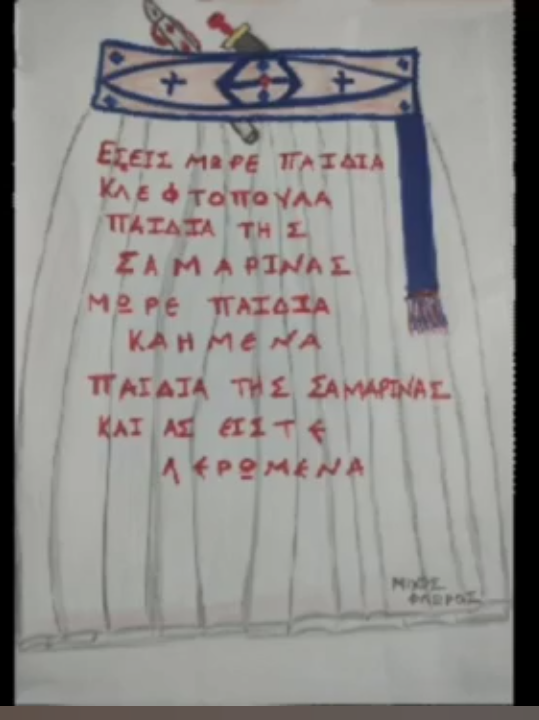 ΕΣΕΙΣ ΜΩΡΕ ΠΑΙΔΙΑ
ΚΛΕΦΤΟΠΟΥΛΑ
ΠΑΙΔΙΑ ΤΗΣ
ΣΑΜΑΡΙΝΑΣ
ΜΩΡΕ ΠΑΙΔΙΑ
ΚΑΗΜΕΝΑ
ΠΑΙΔΙΑ ΤΗΣ ΣΑΜΑΡΙΝΑΣ
ΚΑΙ ΑΣ ΕΙΣΤΕ
ΛΕΡΩΜΕΝΑ
ΦΛΩΡΟΣ